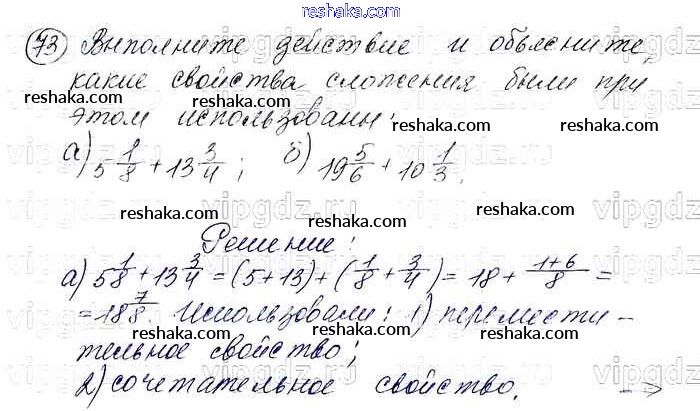 reshaka.com
73 Выполните действие и объясните,
какие свойства сложения были при
reshaka.com reshaka.com
этом использованы:
reshaka.com
а) 5 1/8 + 13 3/4; б) 19 5/6 + 10 1/3.
reshaka.com
reshaka.com reshaka.com
Решение:
reshaka.com
а) 5 1/8 + 13 3/4 = (5+13) + (1/8 + 3/4) = 18 + (1+6)/8 =
= 18 7/8. Использовали: 1) перемести-
reshaka.com
тельное свойство; reshaka.com
2) сочетательное свойство. →
reshaka.com